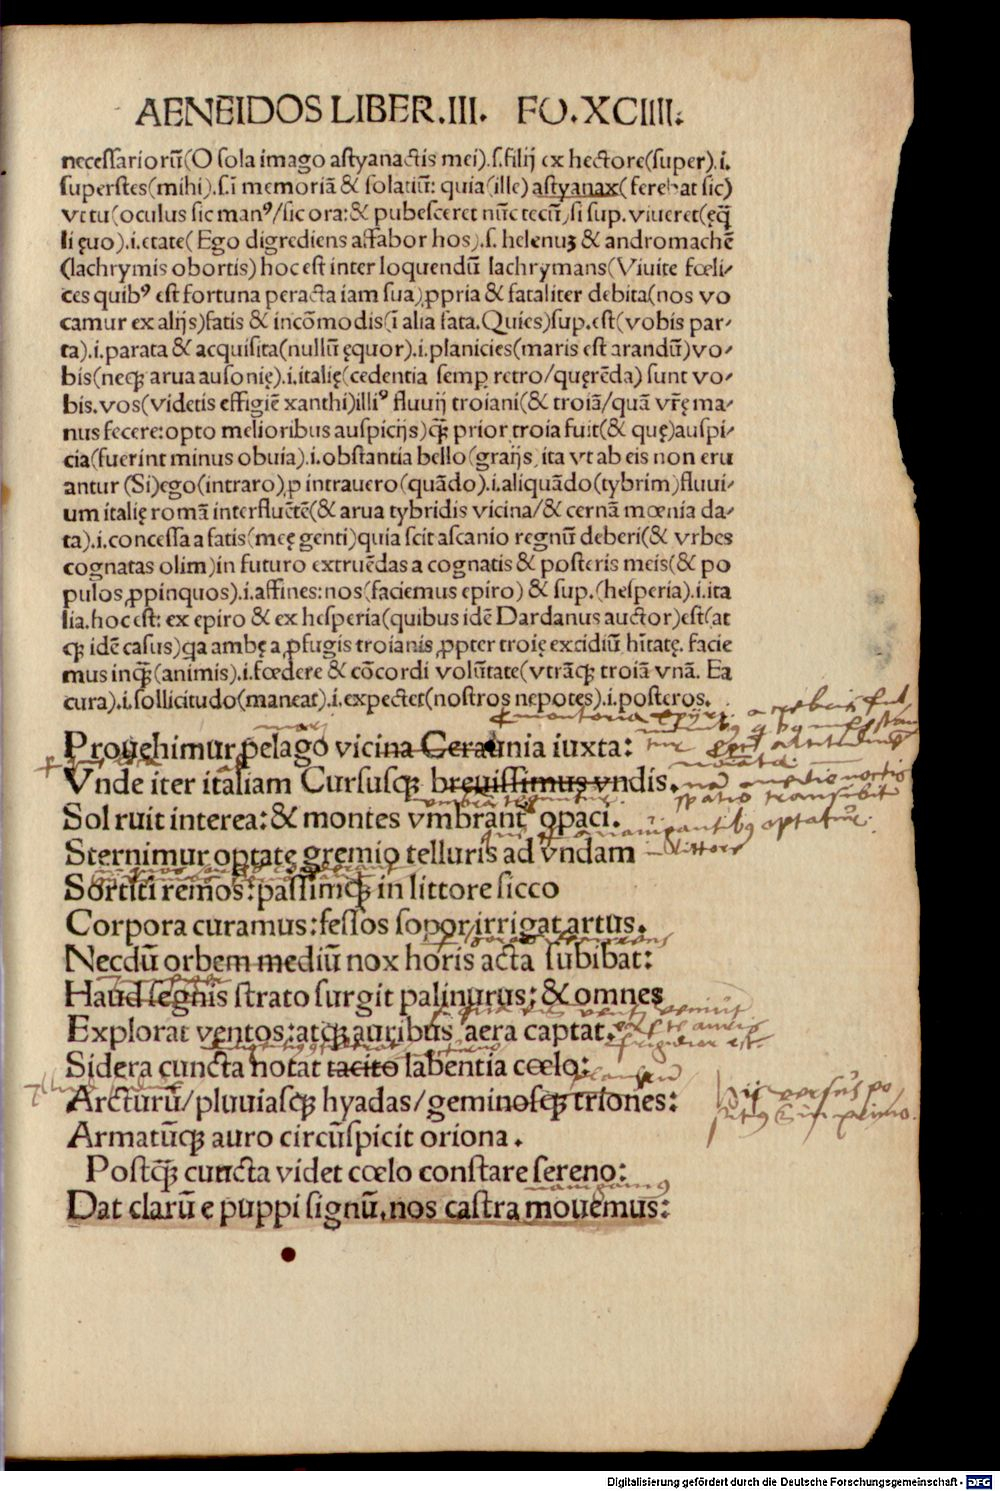 AENEIDOS LIBER.III. FO.XCIIII.
necessariorū(O sola imago astyanactis mei).s.filij ex hectore(super).i.
superstes(mihi).s.ī memoriā & solatiū: quia(ille) astyanax( ferebat sic)
vt tu(oculus sic manꝰ/sic ora:& pubesceret nūc tecū, si sup. viueret(ęq̄
li ęuo).i.etate( Ego digrediens affabor hos).s. helenuꝫ & andromachē
(lachrymis obortis) hoc est inter loquendū lachrymans(Viuite fœli⸗
ces quibꝰ est fortuna peracta iam sua),ꝓpria & fataliter debita(nos vo
camur ex alijs)fatis & incōmodis(ī alia fata.Quies)sup.est(vobis par⸗
ta).i.parata & acquisita(nullū ęquor).i.planicies(maris est arandū)vo⸗
bis(neqꝫ arua ausonię).i.italię(cedentia semꝑ retro/quęrēda) sunt vo⸗
bis.vos(videtis effigiē xanthi)illiꝰ fluuij troiani(& troiā/quā vr̄ę ma⸗
nus fecere:opto melioribus auspicijs)q̄ꝫ prior troia fuit(& quę)auspi⸗
cia(fuerint minus obuia).i.obstantia bello(graijs, ita vt ab eis non eru
antur (Si)ego(intraro),p intrauero(quādo).i.aliquādo(tybrim)fluui⸗
um italię romā interfluētē(& arua tybridis vicina/& cernā mœnia da⸗
ta).i.concessa a fatis(meę genti)quia scit ascanio regnū deberi(& vrbes
cognatas olim)in futuro extruēdas a cognatis & posteris meis(& po
pulos ꝓpinquos).i.affines:nos(faciemus epiro) & sup.(hesperia).i.ita
lia.hoc est: ex epiro & ex hesperia(quibus idē Dardanus auctor)est(at
qꝫ idē casus)qa ambę a ꝓfugis troianis ꝓpter troię excidiū hītatę. facie
mus inq̄ꝫ(animis).i.fœdere & cōcordi volūtate(vtrāqꝫ troiā vnā. Ea
cura).i.sollicitudo(maneat).i.expectet(nostros nepotes).i.posteros.
Prouehimur pelago vicina Ceraunia iuxta:
Vnde iter italiam Cursusqꝫ breuissimus vndis.
Sol ruit interea:& montes vmbrant opaci.
Sternimur optate gremio telluris ad vndam
in littore
Sortiti remos:passimqꝫ in littore sicco
Corpora curamus:fessos sopor irrigat artus.
Necdū orbem mediū nox horis acta subibat:
Haud segnis strato surgit palinurus: & omnes
Explorat ventos:atqꝫ auribus aera captat.
Sidera cuncta notat tacito labentia cœlo:
Arcturū/pluuiasqꝫ hyadas/geminosqꝫ triones:
Armatūqꝫ auro circūspicit oriona.
Postq̄ꝫ cuncta videt cœlo constare sereno:
nauigamus
Dat clarū e puppi signū.nos castra mouemus:
Digitalisierung gefördert durch die Deutsche Forschungsgemeinschaft - DFG